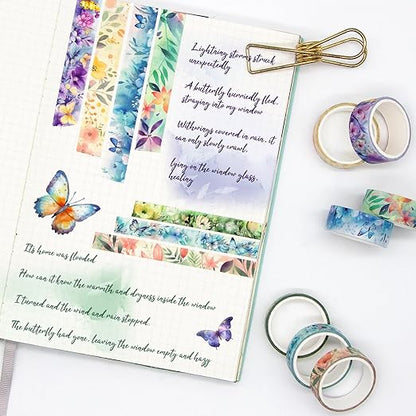 Lightning storms struck
unexpectedly
A butterfly hurriedly fled,
straying into my window
With wings covered in rain, it
can only slowly crawl,
lying on the window glass,
healing
It's home was flooded
How can it know the warmth and dryness inside the window
I turned and the wind and rain stopped.
The butterfly had gone, leaving the window empty and hazy